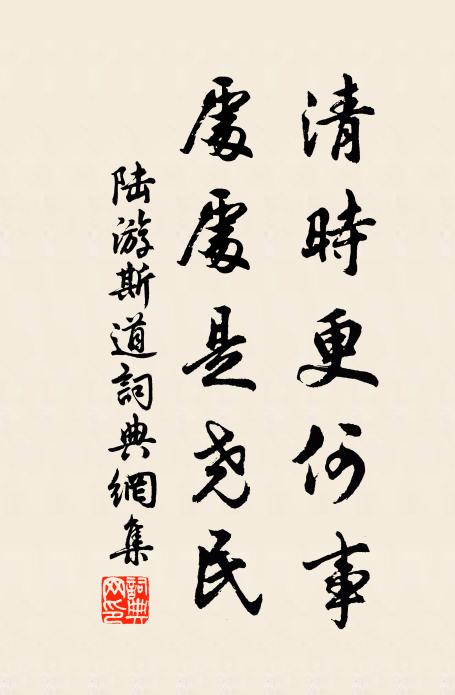 清時更何事
處處是堯民
陆游斯道詞典網集
詞典网印